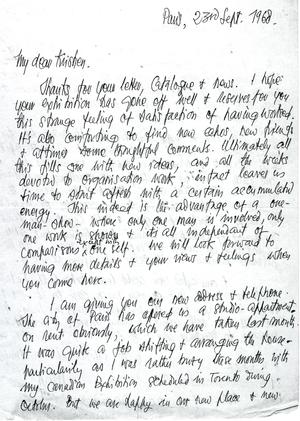 Paris, 23rd Sept. 1968.
My dear Krishen.
Thanks for your letter, Catalogue & news. I hope
your exhibition has gone off well & reserves for you
this strange feeling of satisfaction of having worked.
It's also comforting to find new echos, new friends
& at times some thoughtful comments. Ultimately all
this fills one with new ideas, and all the weeks
devoted to organisation work, infact leaves us
time to start afresh with a certain accumulated
energy. This indeed is the advantage of a one-
man-show - when only one man is involved, only
one work is shown & it's all independant of
comparisons, one self. We will look forward to
having more details & your views & feelings when
you come here.
I am giving you our new address & telephone.
The city of Paris has offered us a studio-appartment
on rent obviously, which we have taken last month.
It was quite a job shifting & arranging the house.
particularly as I was rather busy these months with
my Canadian Exhibition scheduled in Toronto during
October. But we are happy in our new place & new